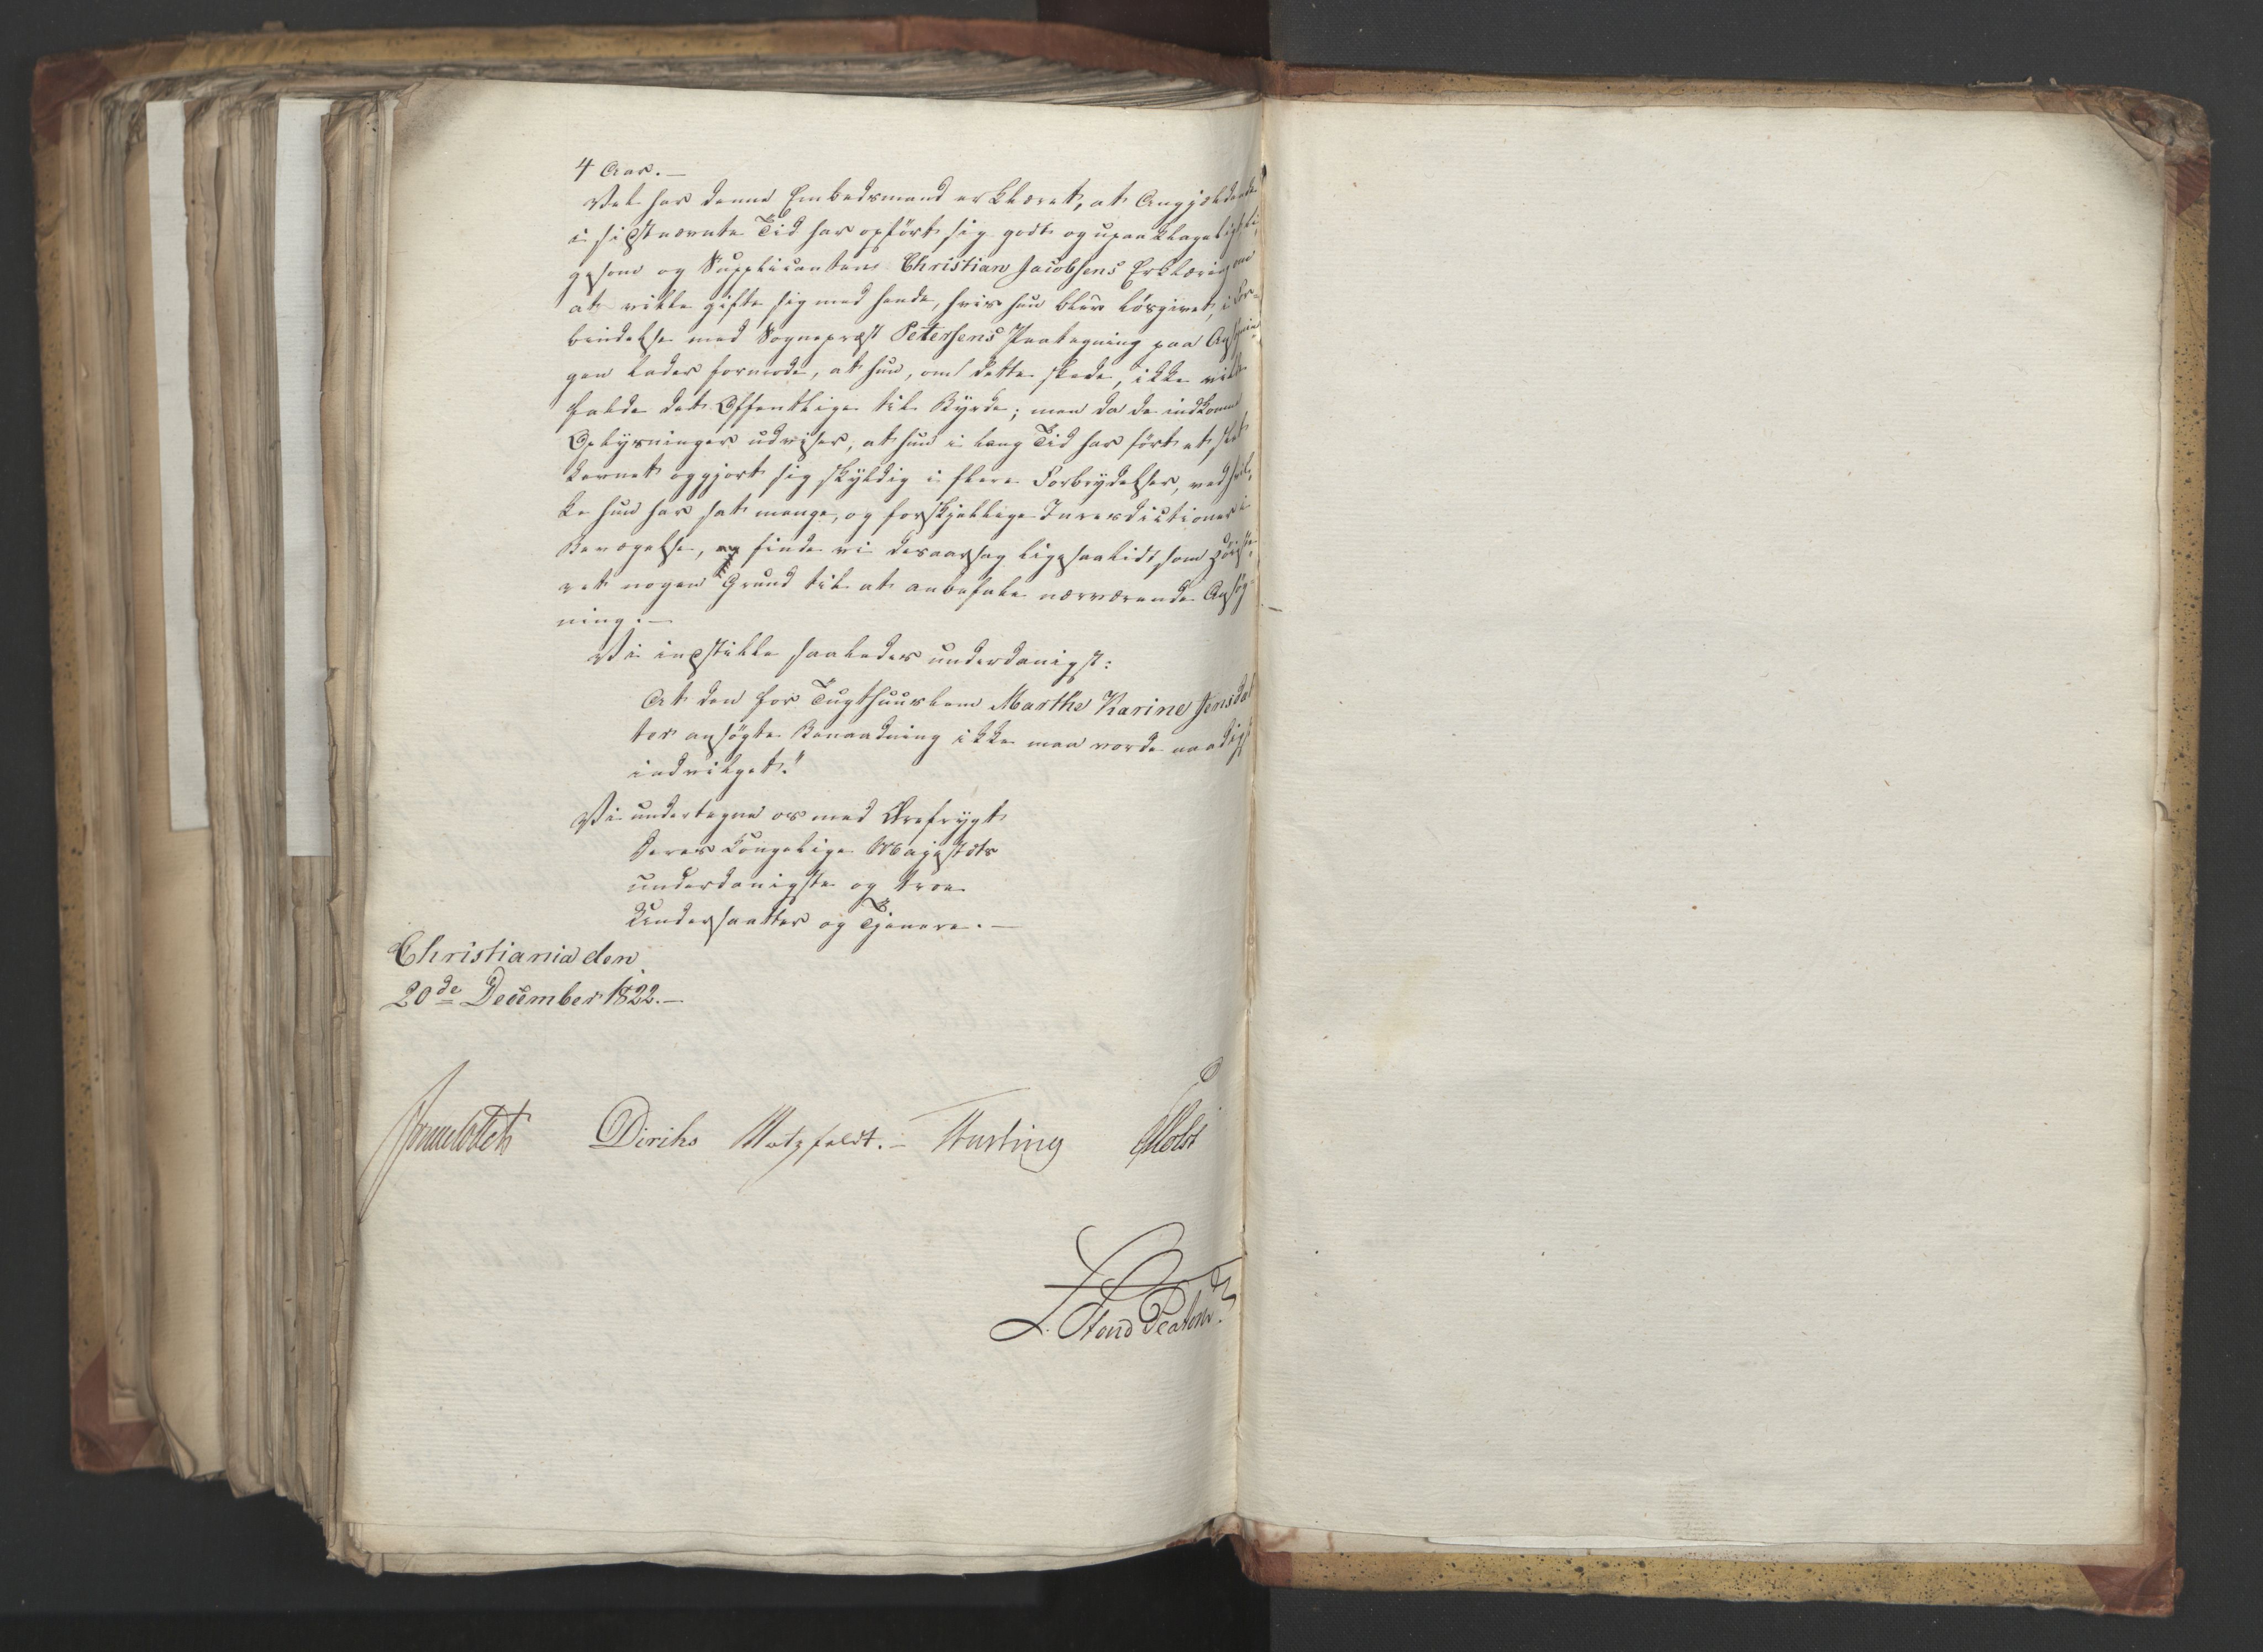 4 Aar. —
Vel har denne Embedsmand erklæret, at Angjeldende
i sidstnævnte Tid har opført sig godt og upaaklageligt li-
gesom og Supplicanten Christian Jacobsens Erklæring om
at ville gifte sig med hende, hvis hun blev løsgivet, i For-
bindelse med Sognepræst Petersens Paategning paa Ansøgnin-
gen lader formode, at hun, om dette skede, ikke vilde
falde det Offentlige til Byrde; men da de indkomne
Oplysninger udviser, at hun i lang Tid har ført et slet
Levnet og gjort sig skyldig i flere Forbrydelser, ved hvil-
ke hun har sat mange, og forskjellige Jurisdictioner i
Bevægelse, finde vi desaarsag ligesaalidt, som Høieste-
ret nogen Grund til at anbefale nærværende Ansøg-
ning. —
Vi indstille saaledes underdanigst:
At den for Tugthuuslem Marthe Karine Jensdat-
ter ansøgte Benaadning ikke maa vorde naadigst
indvilget."
Vi undertegne os med Ærefrygt
Deres Kongelige Majestæts
underdanigste og troe
Undersaatter og Tjenere. —
Christiania den
20de December 1822. —
Sommerfeldt Diriks Motzfeldt. — Fasting Holst